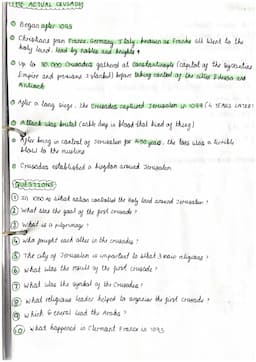 THE ACTUAL CRUSADE
Began after 1095
Christians from France, Germany, Italy, known as Franks all went to the
holy land. lead by nobles and knights
Up to 30,000 Crusaders gathered at Constantinople (capital of the byzantine
Empire and previous Istanbul) before taking control of the cities Edessa and
Antioch
After a long siege, the Crusaders captured Jerusalem in 1099 (4 YEARS LATER)
Attack was brutal (ankle deep in blood that kind of thing)
After being in control of Jerusalem for 400 years, the loss was a terrible
blow to the muslims
Crusaders established a kingdom around Jerusalem
QUESTIONS
① In 1080 AD what nation controlled the holy land around Jerusalem?
② What was the goal of the first crusade?
③ What is a pilgrimage?
④ Who fought each other in the crusades?
⑤ The city of Jerusalem is important to what 3 main religions?
⑥ What was the result of the first crusade?
⑦ What was the symbol of the Crusades?
⑧ What religious leader helped to organise the first crusade?
⑨ Which General lead the Arabs?
⑩ What happened in Clermont France in 1095